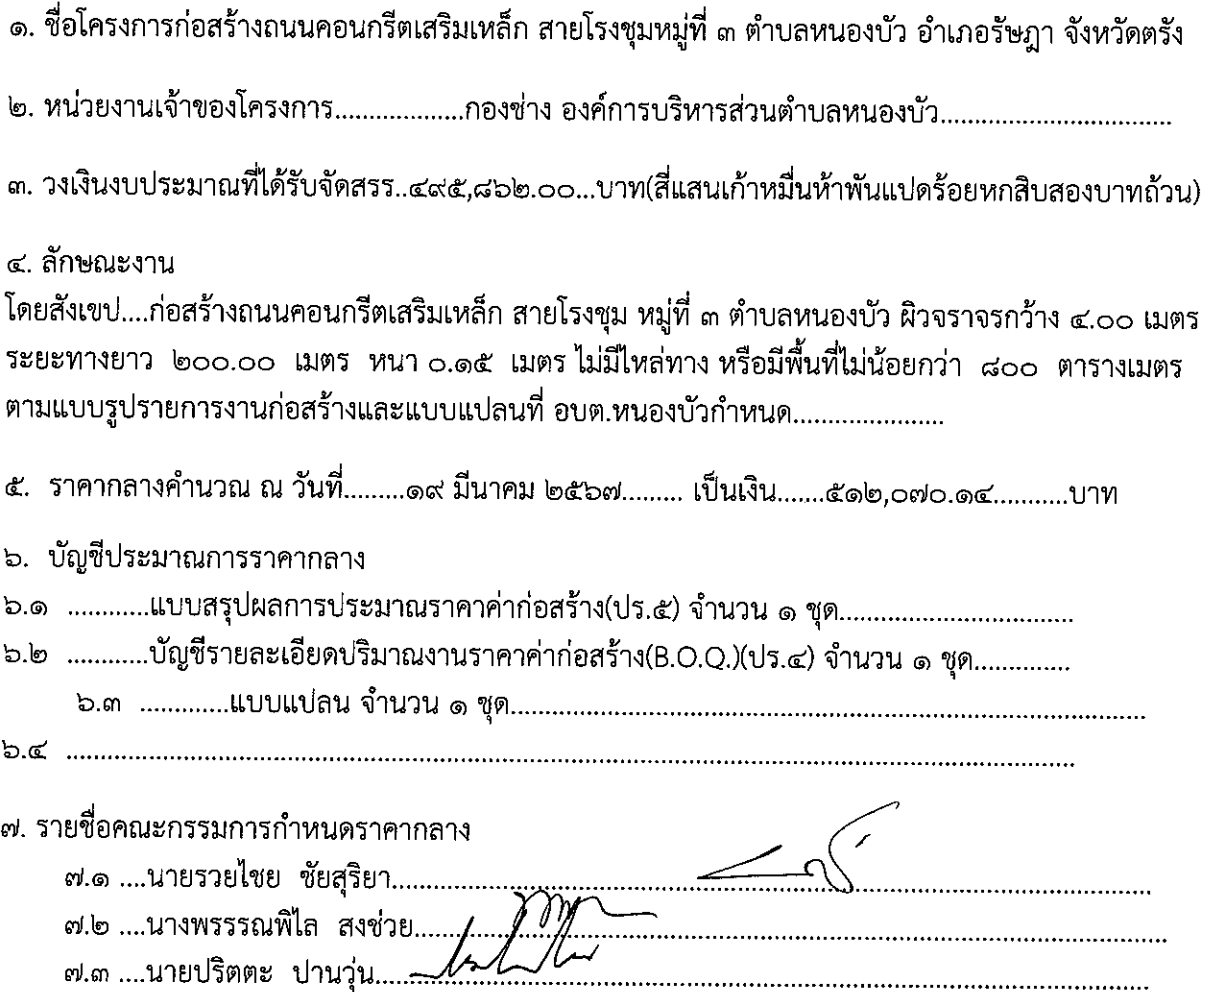 ๑. ชื่อโครงการก่อสร้างถนนคอนกรีตเสริมเหล็ก สายโรงชุมหมู่ที่ ๓ ตำบลหนองบัว อำเภอรัษฎา จังหวัดตรัง
๒. หน่วยงานเจ้าของโครงการ...................กองช่าง องค์การบริหารส่วนตำบลหนองบัว..................................
๓. วงเงินงบประมาณที่ได้รับจัดสรร..๔๙๕,๘๖๒.๐๐...บาท(สี่แสนเก้าหมื่นห้าพันแปดร้อยหกสิบสองบาทถ้วน)
๔. ลักษณะงาน
โดยสังเขป....ก่อสร้างถนนคอนกรีตเสริมเหล็ก สายโรงชุม หมู่ที่ ๓ ตำบลหนองบัว ผิวจราจรกว้าง ๔.๐๐ เมตร
ระยะทางยาว ๒๐๐.๐๐ เมตร หนา ๐.๑๕ เมตร ไม่มีไหล่ทาง หรือมีพื้นที่ไม่น้อยกว่า ๘๐๐ ตารางเมตร
ตามแบบรูปรายการงานก่อสร้างและแบบแปลนที่ อบต.หนองบัวกำหนด......................
๕. ราคากลางคำนวณ ณ วันที่.........๑๙ มีนาคม ๒๕๖๗......... เป็นเงิน.......๕๑๒,๐๗๐.๑๔...........บาท
๖. บัญชีประมาณการราคากลาง
๖.๑ ............แบบสรุปผลการประมาณราคาค่าก่อสร้าง(ปร.๕) จำนวน ๑ ชุด..................................
๖.๒ ............บัญชีรายละเอียดปริมาณงานราคาค่าก่อสร้าง(B.O.Q.)(ปร.๔) จำนวน ๑ ชุด..............
๖.๓ .............แบบแปลน จำนวน ๑ ชุด............................................................................................
๖.๔ ..................................................................................................................................................
๗. รายชื่อคณะกรรมการกำหนดราคากลาง
๗.๑ ....นายรวยไชย ชัยสุริยา..............................................................................................................
๗.๒ ....นางพรรรณพิไล สงช่วย.............................................................................................................
๗.๓ ....นายปริตตะ ปานวุ่น................................................................................................................